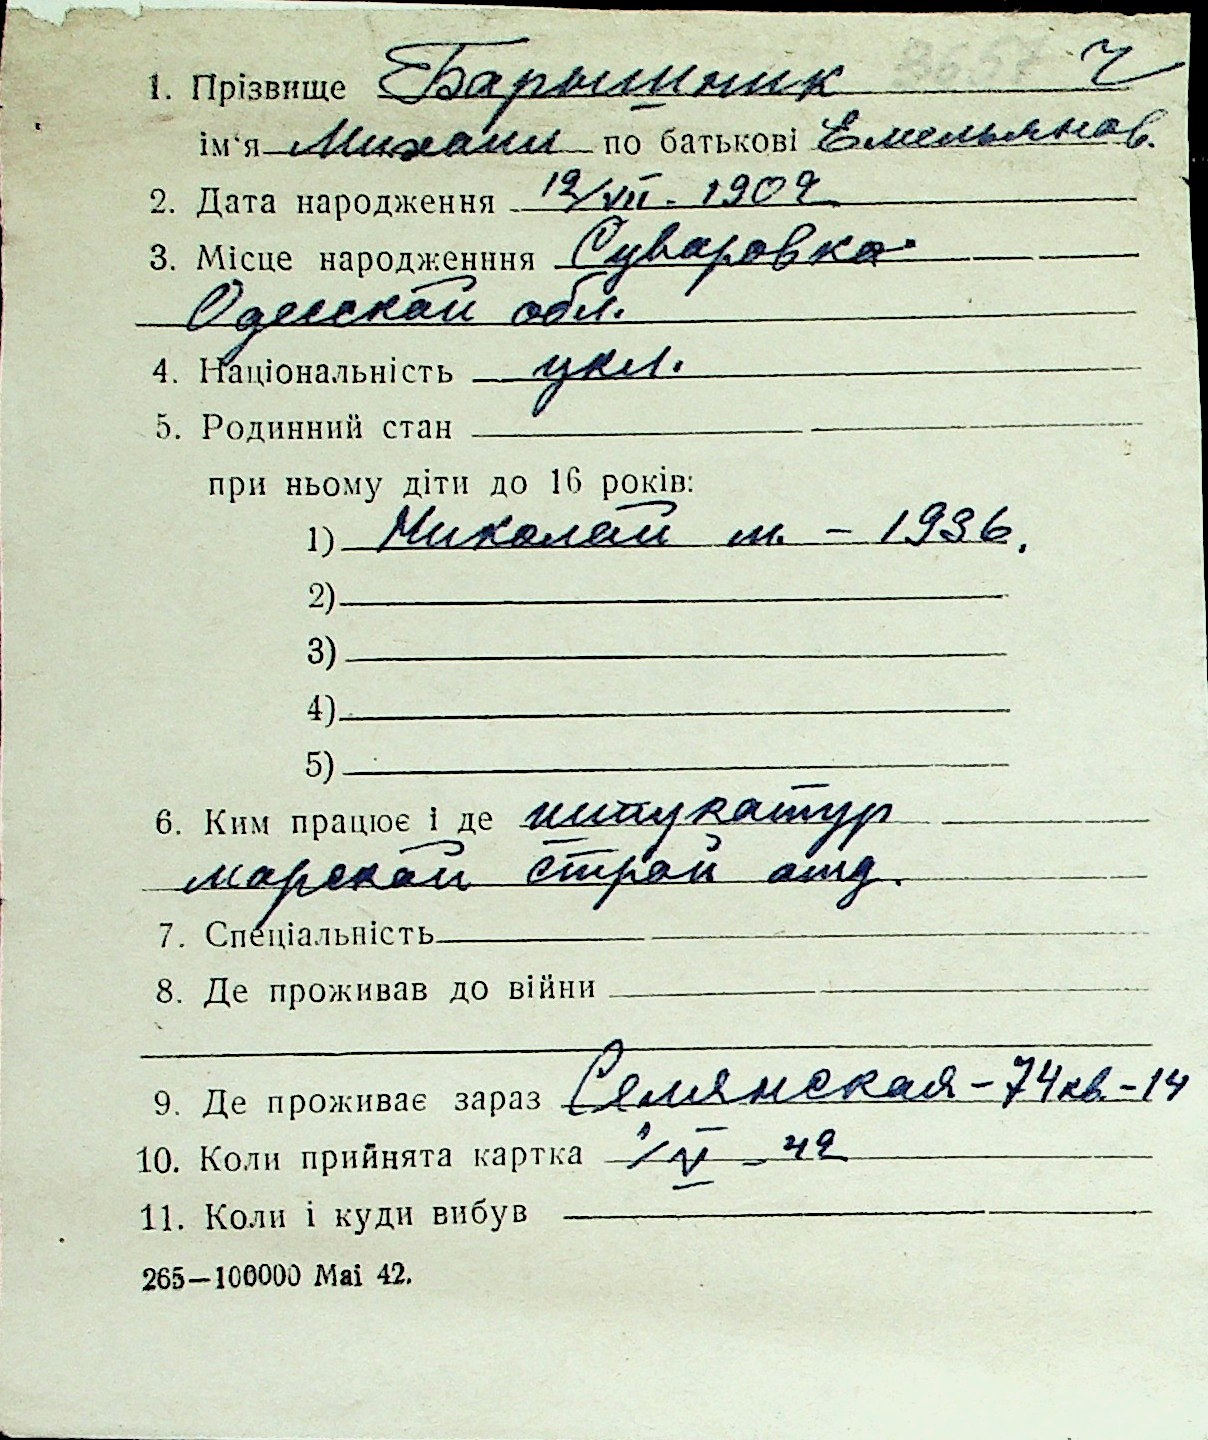 1. Прізвище Барышник Ч
ім'я Михаил по батькові Емельянов.
2. Дата народження 12/VII - 1902
3. Місце народженння Суваровка
Одесской обл.
4. Національність укл.
5. Родинний стан
при ньому діти до 16 років:
1) Миколай м. - 1936.
2)
3)
4)
5)
6. Ким працює і де штукатур
марской строй отд.
7. Спеціальність
8. Де проживав до війни
9. Де проживає зараз Семянская - 74 кв. - 14
10. Коли прийнята картка 1/V - 42
11. Коли і куди вибув
265—100000 Mai 42.